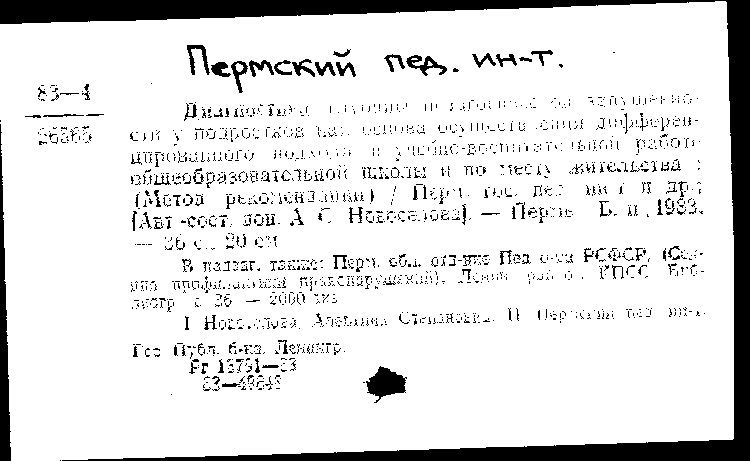 Пермский пед. ин-т.
83—4
26365
Диагностика запущенно-
сти у подростков как основа осуществления дифферен-
цированного подхода в учебно-воспитательной работе
общеобразовательной школы и по месту жительства :
(Метод. рекомендации) / Перм. гос. пед. ин-т и др.;
[Авт.-сост. доц. А. С. Новоселова]. — Пермь : Б. и., 1983.
— 36 с.; 20 см
В надзаг. также: Перм. обл. отд-ние Пед. о-ва РСФСР, (Сек-
ция профилактики правонарушений), Ленин. рай КПСС. Биб-
лиогр.: с. 36. — 2000 экз.
I. Новоселова, Степановна. II. Пермский пед. ин-т.
Гос. Публ. б-ка. Ленингр.
83—49849